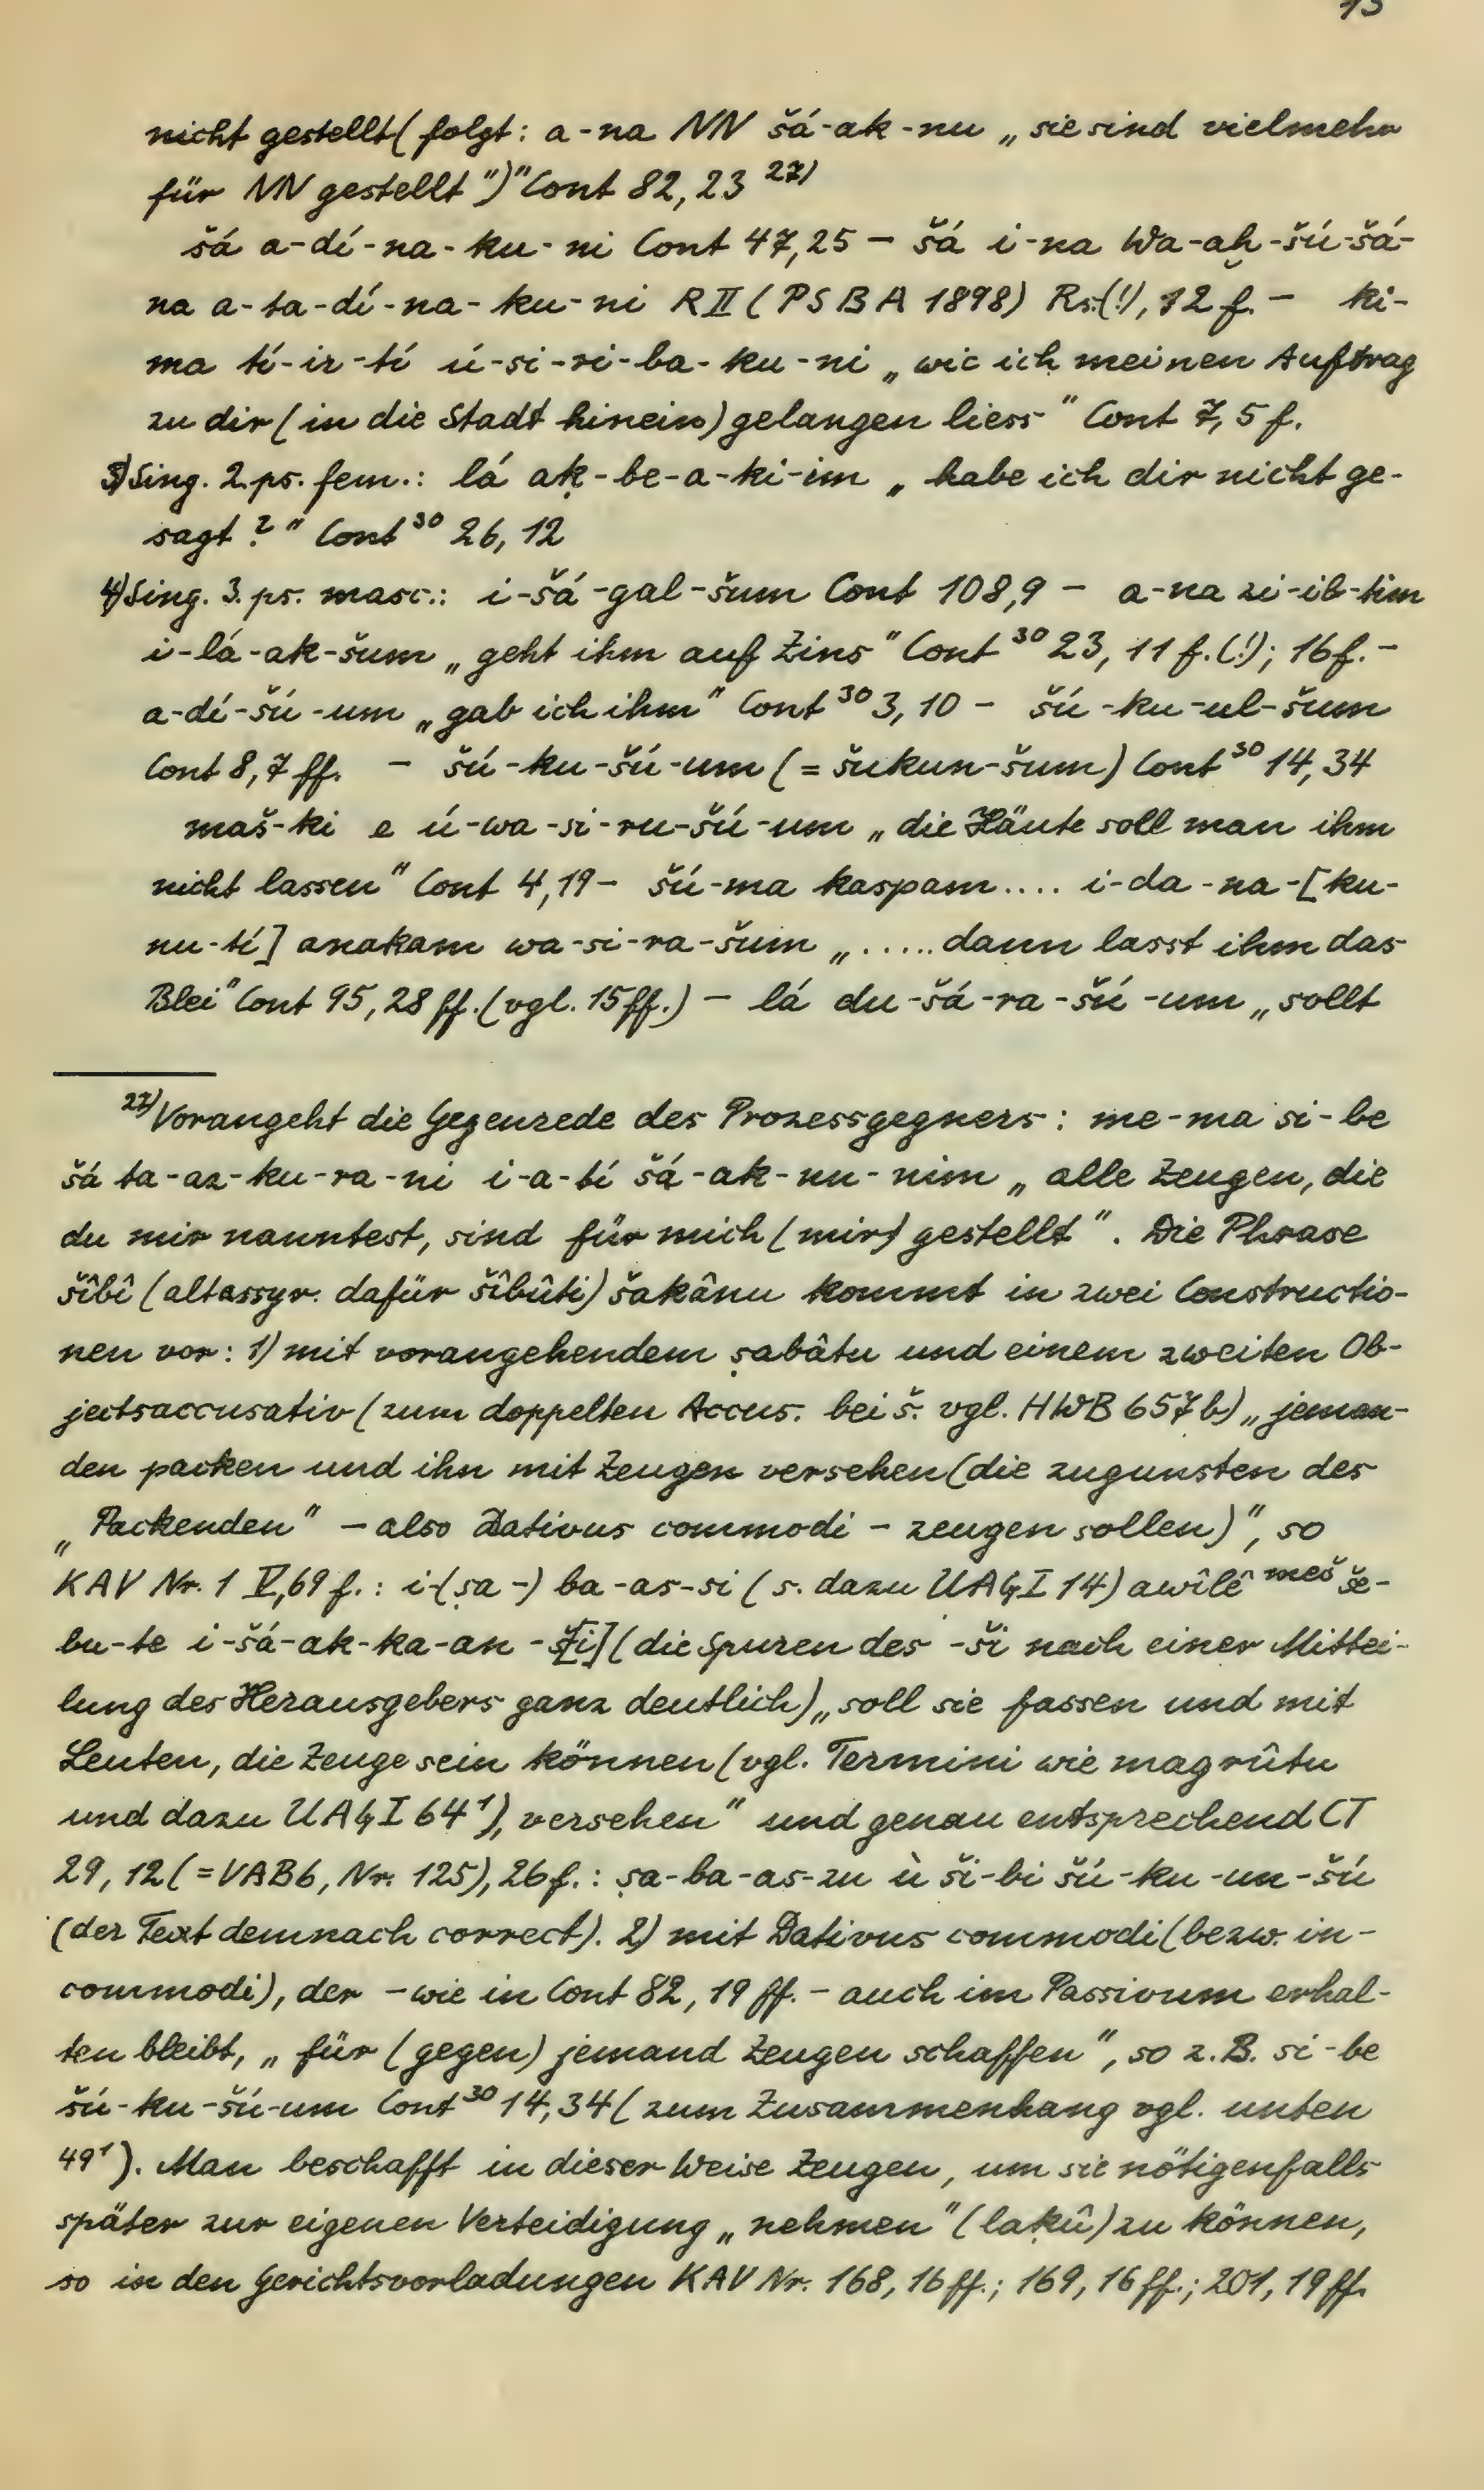 nicht gestellt (folgt: a-na NN šá-ak-nu „sie sind vielmehr
für NN gestellt")" Cont 82,23 ²⁷⁾
šá a-dí-na-ku-ni Cont 47,25 – šá i-na Wa-aḫ-šú-šá-
na a-ta-dí-na-ku-ni R II (PSBA 1898) Rs.(!), 12 f. – ki-
ma tí-ir-tí ú-si-ri-ba-ku-ni „wie ich meinen Auftrag
zu dir (in die Stadt hinein) gelangen liess" Cont 7, 5 f.
3) Sing. 2. ps. fem.: lá aḳ-be-a-ki-im „habe ich dir nicht ge-
sagt?" Cont³⁰ 26, 12
4) Sing. 3. ps. masc.: i-šá-gal-šum Cont 108,9 – a-na zi-ib-tim
i-lá-ak-šum „geht ihm auf Zins" Cont³⁰ 23, 11 f. (!); 16 f. –
a-dí-šú-um „gab ich ihm" Cont³⁰ 3, 10 – šú-ku-ul-šum
Cont 8,7 ff. – šú-ku-šú-um (= šukun-šum) Cont³⁰ 14,34
maš-ki e ú-wa-si-ru-šú-um „die Häute soll man ihm
nicht lassen" Cont 4,19 – šú-ma kaspam.... i-da-na-[ku-
nu-tí] anakam wa-si-ra-šum „.....dann lasst ihm das
Blei" Cont 95,28 ff. (vgl. 15 ff.) – lá du-šá-ra-šú-um „sollt
²⁷⁾ Vorangeht die Gegenrede des Prozessgegners: me-ma si-be
šá ta-az-ku-ra-ni i-a-tí šá-ak-nu-nim „alle Zeugen, die
du mir nanntest, sind für mich (mir) gestellt". Die Phrase
šîbî (altassyr. dafür šîbûti) šakânu kommt in zwei Constructio-
nen vor: 1) mit vorangehendem ṣabâtu und einem zweiten Ob-
jectsaccusativ (zum doppelten Accus. bei š. vgl. HWB 657 b) „jeman-
den packen und ihn mit Zeugen versehen (die zugunsten des
„Packenden" – also Dativus commodi – zeugen sollen)", so
KAV Nr. 1 V,69 f.: i-(ṣa-) ba-as-si (s. dazu UAG I 14) awîlê ᵐᵉš še-
bu-te i-šá-ak-ka-an-š[i] (die Spuren des -ši nach einer Mittei-
lung des Herausgebers ganz deutlich) „soll sie fassen und mit
Leuten, die Zeuge sein können (vgl. Termini wie magrûtu
und dazu UAG I 64¹), versehen" und genau entsprechend CT
29, 12 (= VAB 6, Nr. 125), 26 f.: ṣa-ba-as-zu ù ši-bi šú-ku-un-šú
(der Text demnach correct). 2) mit Dativus commodi (bezw. in-
commodi), der – wie in Cont 82, 19 ff. – auch im Passivum erhal-
ten bleibt, „für (gegen) jemand Zeugen schaffen", so z. B. si-be
šú-ku-šú-um Cont³⁰ 14,34 (zum Zusammenhang vgl. unten
49¹). Man beschafft in dieser Weise Zeugen, um sie nötigenfalls
später zur eigenen Verteidigung „nehmen" (laḳû) zu können,
so in den Gerichtsvorladungen KAV Nr. 168, 16 ff.; 169, 16 ff.; 201, 19 ff.